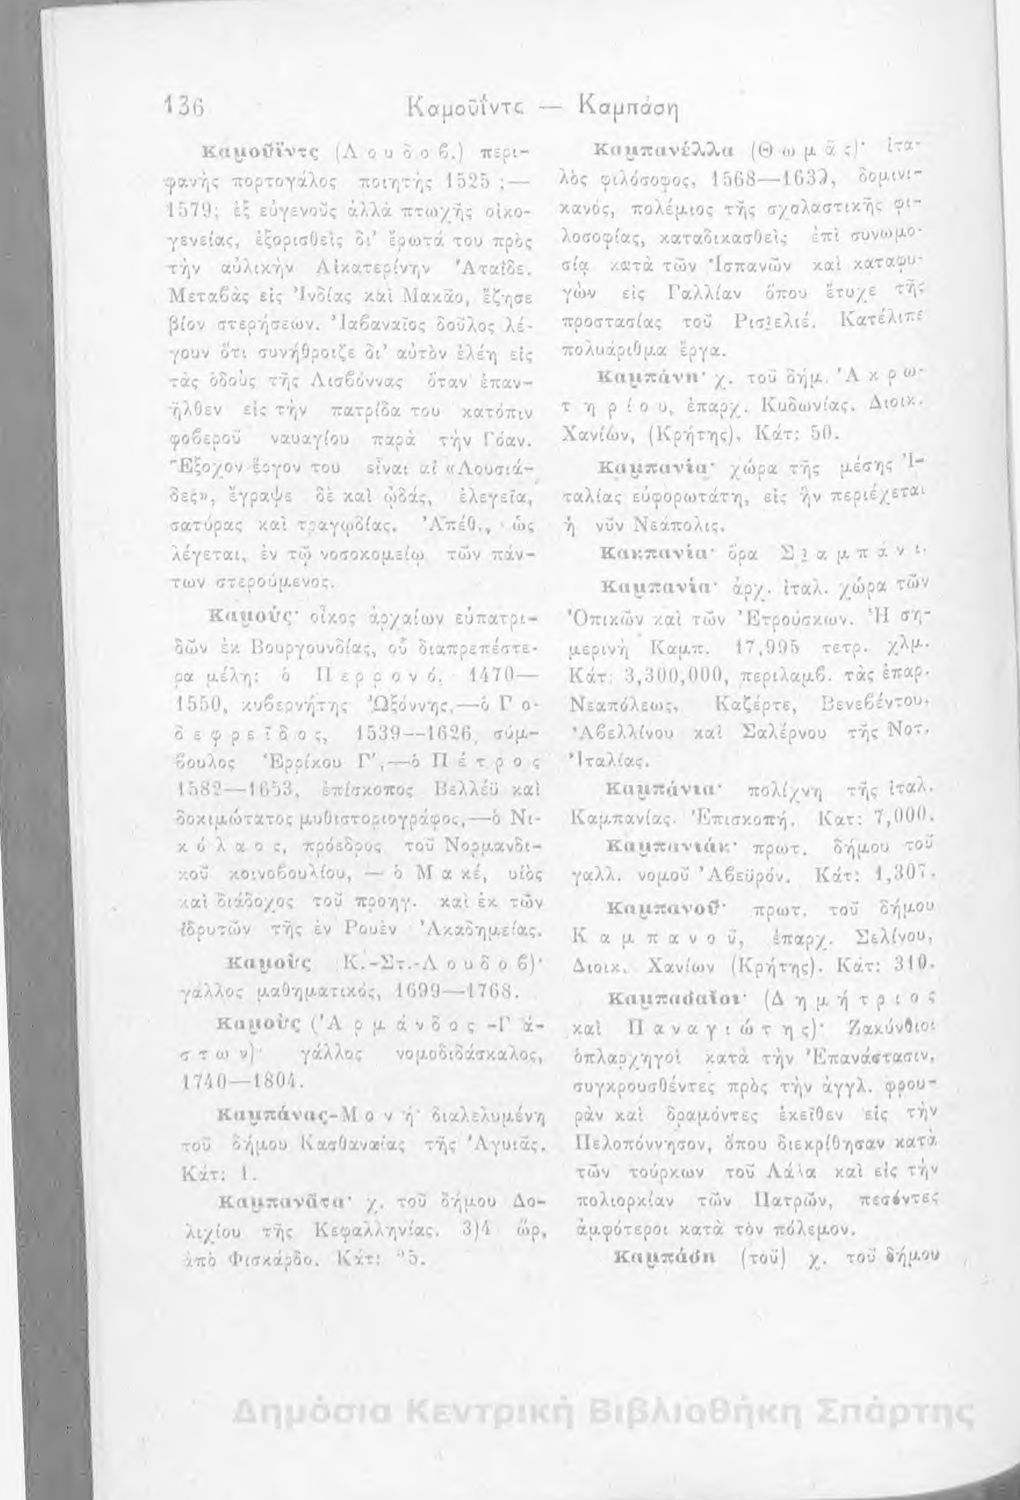 136 Καμοῦϊντς — Καμπάση
Καμοῦϊντς (Λουδοβ.) περι-
φανὴς πορτογάλος ποιητὴς 1525 ;—
1579; ἐξ εὐγενοῦς ἀλλὰ πτωχῆς οἰκο-
γενείας, ἐξορισθεὶς δι' ἔρωτά του πρὸς
τὴν αὐλικὴν Αἰκατερίνην Ἀταΐδε.
Μεταβὰς εἰς Ἰνδίας καὶ Μακάο, ἔζησε
βίον στερήσεων. Ἰαβαναῖος δοῦλος λέ-
γουν ὅτι συνήθροιζε δι' αὐτὸν ἐλέη εἰς
τὰς ὁδοὺς τῆς Λισβόννας ὅταν ἐπαν-
ῆλθεν εἰς τὴν πατρίδα του κατόπιν
φοβεροῦ ναυαγίου παρὰ τὴν Γόαν.
Ἔξοχον ἔργον του εἶναι αἱ «Λουσιά-
δες», ἔγραψε δὲ καὶ ᾠδάς, ἐλεγεῖα,
σατύρας καὶ τραγῳδίας. Ἀπέθ., ὡς
λέγεται, ἐν τῷ νοσοκομείῳ τῶν πάν-
των στερούμενος.
Καμούς· οἶκος ἀρχαίων εὐπατρι-
δῶν ἐκ Βουργουνδίας, οὗ διαπρεπέστε-
ρα μέλη: ὁ Περρονό, 1470—
1550, κυβερνήτης Ὠξόννης,—ὁ Γο-
δεφρεῖδος, 1539—1626, σύμ-
βουλος Ἑρρίκου Γ',—ὁ Πέτρος
1582—1653, ἐπίσκοπος Βελλέϋ καὶ
δοκιμώτατος μυθιστοριογράφος,—ὁ Νι-
κόλαος, πρόεδρος τοῦ Νορμανδι-
κοῦ κοινοβουλίου, — ὁ Μακέ, υἱὸς
καὶ διάδοχος τοῦ προηγ. καὶ ἐκ τῶν
ἱδρυτῶν τῆς ἐν Ρουὲν Ἀκαδημείας.
Καμοὺς Κ.-Στ.-Λουδοβ)·
γάλλος μαθηματικός, 1699—1768.
Καμοὺς (Ἀρμάνδος-Γά-
στων)· γάλλος νομοδιδάσκαλος,
1740—1804.
Καμπάνας-Μονή· διαλελυμένη
τοῦ δήμου Κασθαναίας τῆς Ἀγυιᾶς.
Κάτ: 1.
Καμπανᾶτα· χ. τοῦ δήμου Δο-
λιχίου τῆς Κεφαλληνίας. 3)4 ὥρ,
ἀπὸ Φισκάρδο. Κάτ: 5.
Καμπανέλλα (Θωμᾶς)· ἰτα-
λὸς φιλόσοφος, 1568—1639, δομινι-
κανός, πολέμιος τῆς σχολαστικῆς φι-
λοσοφίας, καταδικασθεὶς ἐπὶ συνωμο-
σίᾳ κατὰ τῶν Ἱσπανῶν καὶ καταφυ-
γὼν εἰς Γαλλίαν ὅπου ἔτυχε τῆς
προστασίας τοῦ Ρισχελιέ. Κατέλιπε
πολυάριθμα ἔργα.
Καμπάνη· χ. τοῦ δήμ. Ἀκρω-
τηρίου, ἐπαρχ. Κυδωνίας. Διοικ.
Χανίων, (Κρήτης), Κάτ: 50.
Καμπανία· χώρα τῆς μέσης Ἰ-
ταλίας εὐφορωτάτη, εἰς ἣν περιέχεται
ἡ νῦν Νεάπολις.
Καμπανία· ὅρα Σαμπάνι.
Καμπανία· ἀρχ. ἰταλ. χώρα τῶν
Ὀπικῶν καὶ τῶν Ἐτρούσκων. Ἡ ση-
μερινὴ Καμπ. 17,995 τετρ. χλμ.
Κάτ: 3,300,000, περιλαμβ. τὰς ἐπαρ.
Νεαπόλεως, Καζέρτε, Βενεβέντου,
Ἀβελλίνου καὶ Σαλέρνου τῆς Νοτ.
Ἰταλίας.
Καμπάνια· πολίχνη τῆς ἰταλ.
Καμπανίας. Ἐπισκοπή. Κατ: 7,000.
Καμπανιάκ· πρωτ. δήμου τοῦ
γαλλ. νομοῦ Ἀβεϋρόν. Κάτ: 1,307.
Καμπανοῦ· πρωτ. τοῦ δήμου
Καμπανοῦ, ἐπαρχ. Σελίνου,
Διοικ. Χανίων (Κρήτης). Κάτ: 310.
Καμπασαῖοι· (Δημήτριος
καὶ Παναγιώτης)· Ζακύνθιοι
ὁπλαρχηγοὶ κατὰ τὴν Ἐπανάστασιν,
συγκρουσθέντες πρὸς τὴν ἀγγλ. φρου-
ρὰν καὶ δραμόντες ἐκεῖθεν εἰς τὴν
Πελοπόννησον, ὅπου διεκρίθησαν κατὰ
τῶν τούρκων τοῦ Λάλα καὶ εἰς τὴν
πολιορκίαν τῶν Πατρῶν, πεσόντες
ἀμφότεροι κατὰ τὸν πόλεμον.
Καμπάση (τοῦ) χ. τοῦ δήμου
Δημόσια Κεντρική Βιβλιοθήκη Σπάρτης